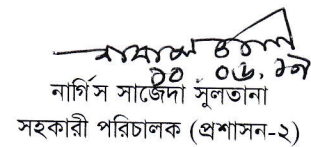 ১০ ০৬, ১৯
নার্গিস সাজেদা সুলতানা
সহকারী পরিচালক (প্রশাসন-২)